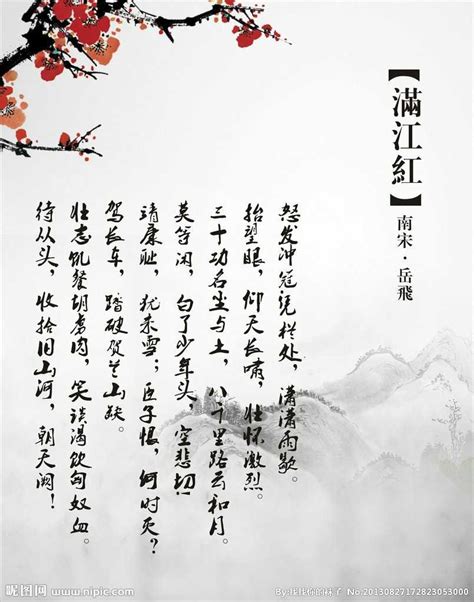 【滿江紅】
南宋·岳飛
怒发冲冠凭栏处，潇潇雨歇。
抬望眼，仰天长啸，壮怀激烈。
三十功名尘与土，八千里路云和月。
莫等闲，白了少年头，空悲切！
靖康耻，犹未雪；臣子恨，何时灭？
驾长车，踏破贺兰山缺。
壮志饥餐胡虏肉，笑谈渴饮匈奴血。
待从头，收拾旧山河，朝天阙！
昵图网 www.nipic.com
By:找找你的袜子 No.20130827172823053000